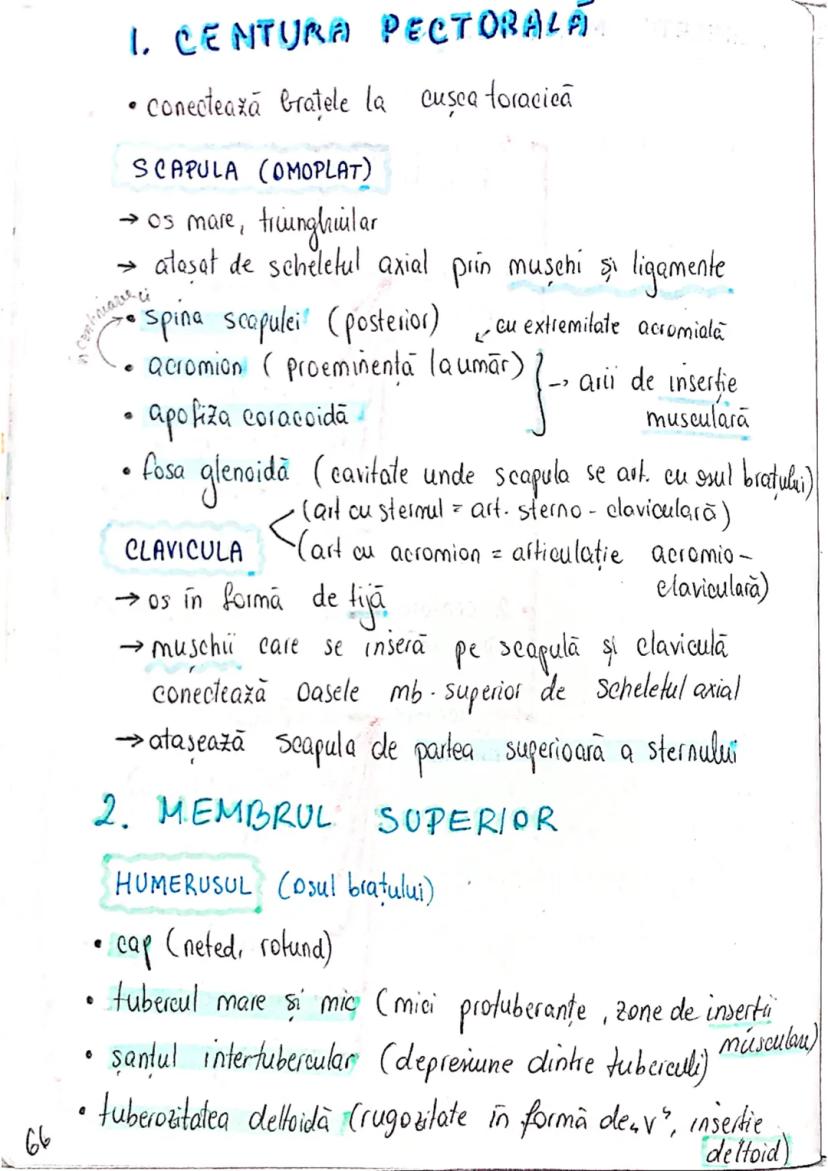 1. CENTURA PECTORALĂ
• conectează brațele la cușca toracică
SCAPULA (OMOPLAT)
→ os mare, triunghiular
→ atașat de scheletul axial prin mușchi și ligamente
în continuare ci
• spina scapulei (posterior) ↙ cu extremitate acromială
• acromion (proeminență la umăr)
• apofiza coracoidă
} → arii de inserție
musculară
• fosa glenoidă (cavitate unde scapula se art. cu osul brațului)
CLAVICULA
(art cu sternul = art. sterno-claviculară)
(art cu acromion = articulație acromio-
claviculară)
→ os în formă de tijă
→ mușchii care se inseră pe scapulă și claviculă
conectează oasele mb. superior de scheletul axial
→ atașează scapula de partea superioară a sternului
2. MEMBRUL SUPERIOR
HUMERUSUL (osul brațului)
• cap (neted, rotund)
• tubercul mare și mic (mici protuberanțe, zone de inserții
musculare)
• șanțul intertubercular (depresiune dintre tuberculi)
• tuberozitatea deltoidă (rugozitate în formă de „V”, inserție
deltoid)
66